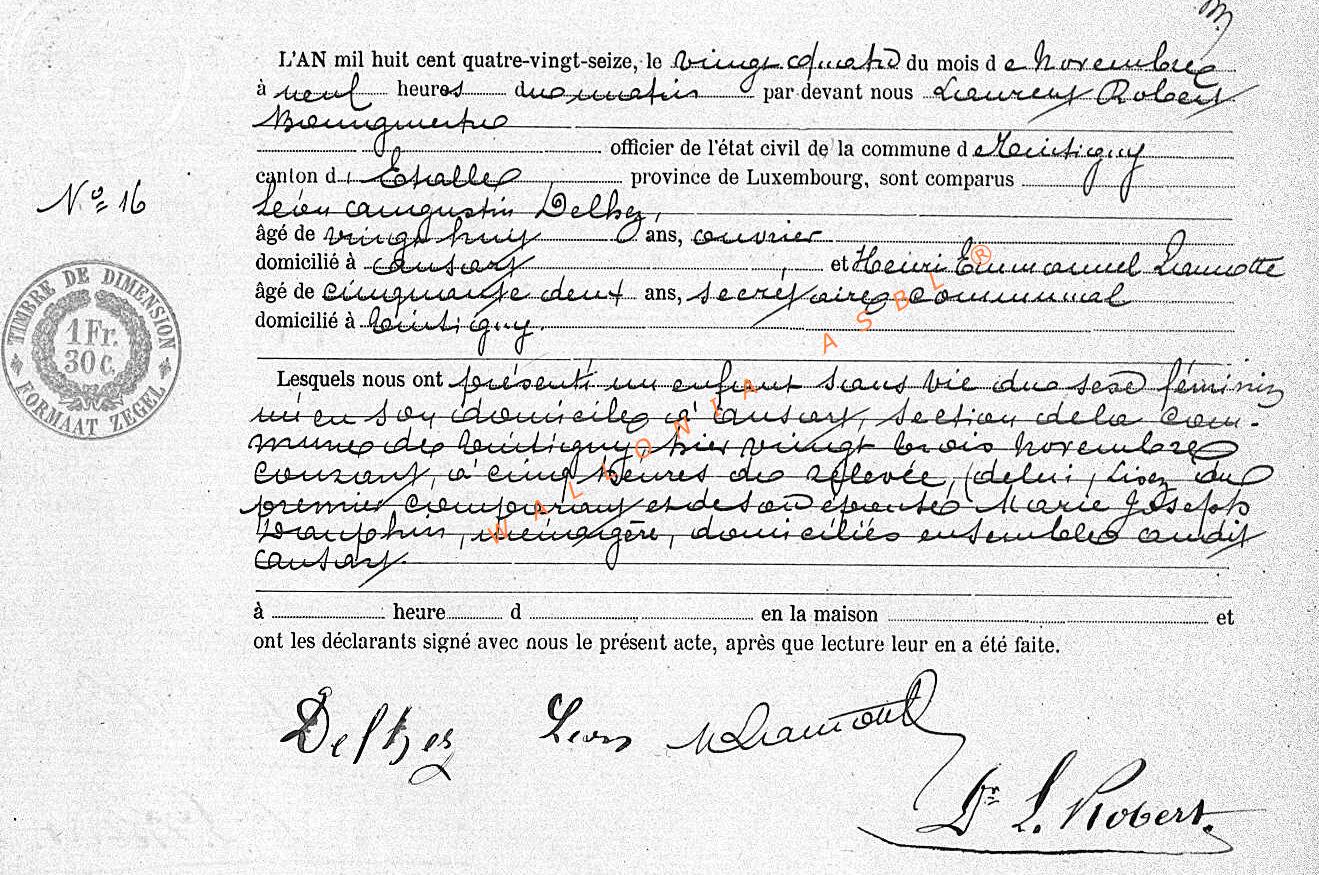 L'AN mil huit cent quatre-vingt-seize, le vingt quatre du mois de Novembre
à neuf heures du matin par devant nous Laurent Robert
Bourgmestre
officier de l'état civil de la commune de Tintigny
canton d' Etalle province de Luxembourg, sont comparus
N° 16
Léon Augustin Delhez,
âgé de vingt huit ans, ouvrier
domicilié à Ansart, et Henri Emmanuel Lamotte
âgé de cinquante deux ans, secrétaire communal
domicilié à Tintigny.
TIMBRE DE DIMENSION
1 Fr.
30 C.
FORMAAT ZEGEL
Lesquels nous ont présenté un enfant sans vie du sexe féminin
né en son domicile à Ansart, section de la com-
mune de Tintigny hier vingt trois Novembre
courant, à cinq heures de relevée, (de lui, Lisez du
premier comparant et de son épouse Marie Joseph
Dauphin, ménagère, domiciliés ensemble audit
Ansart.
à heure d en la maison et
ont les déclarants signé avec nous le présent acte, après que lecture leur en a été faite.
Delhez Léon Lamotte
Dr L. Robert.
WALLONIA ASBL ®